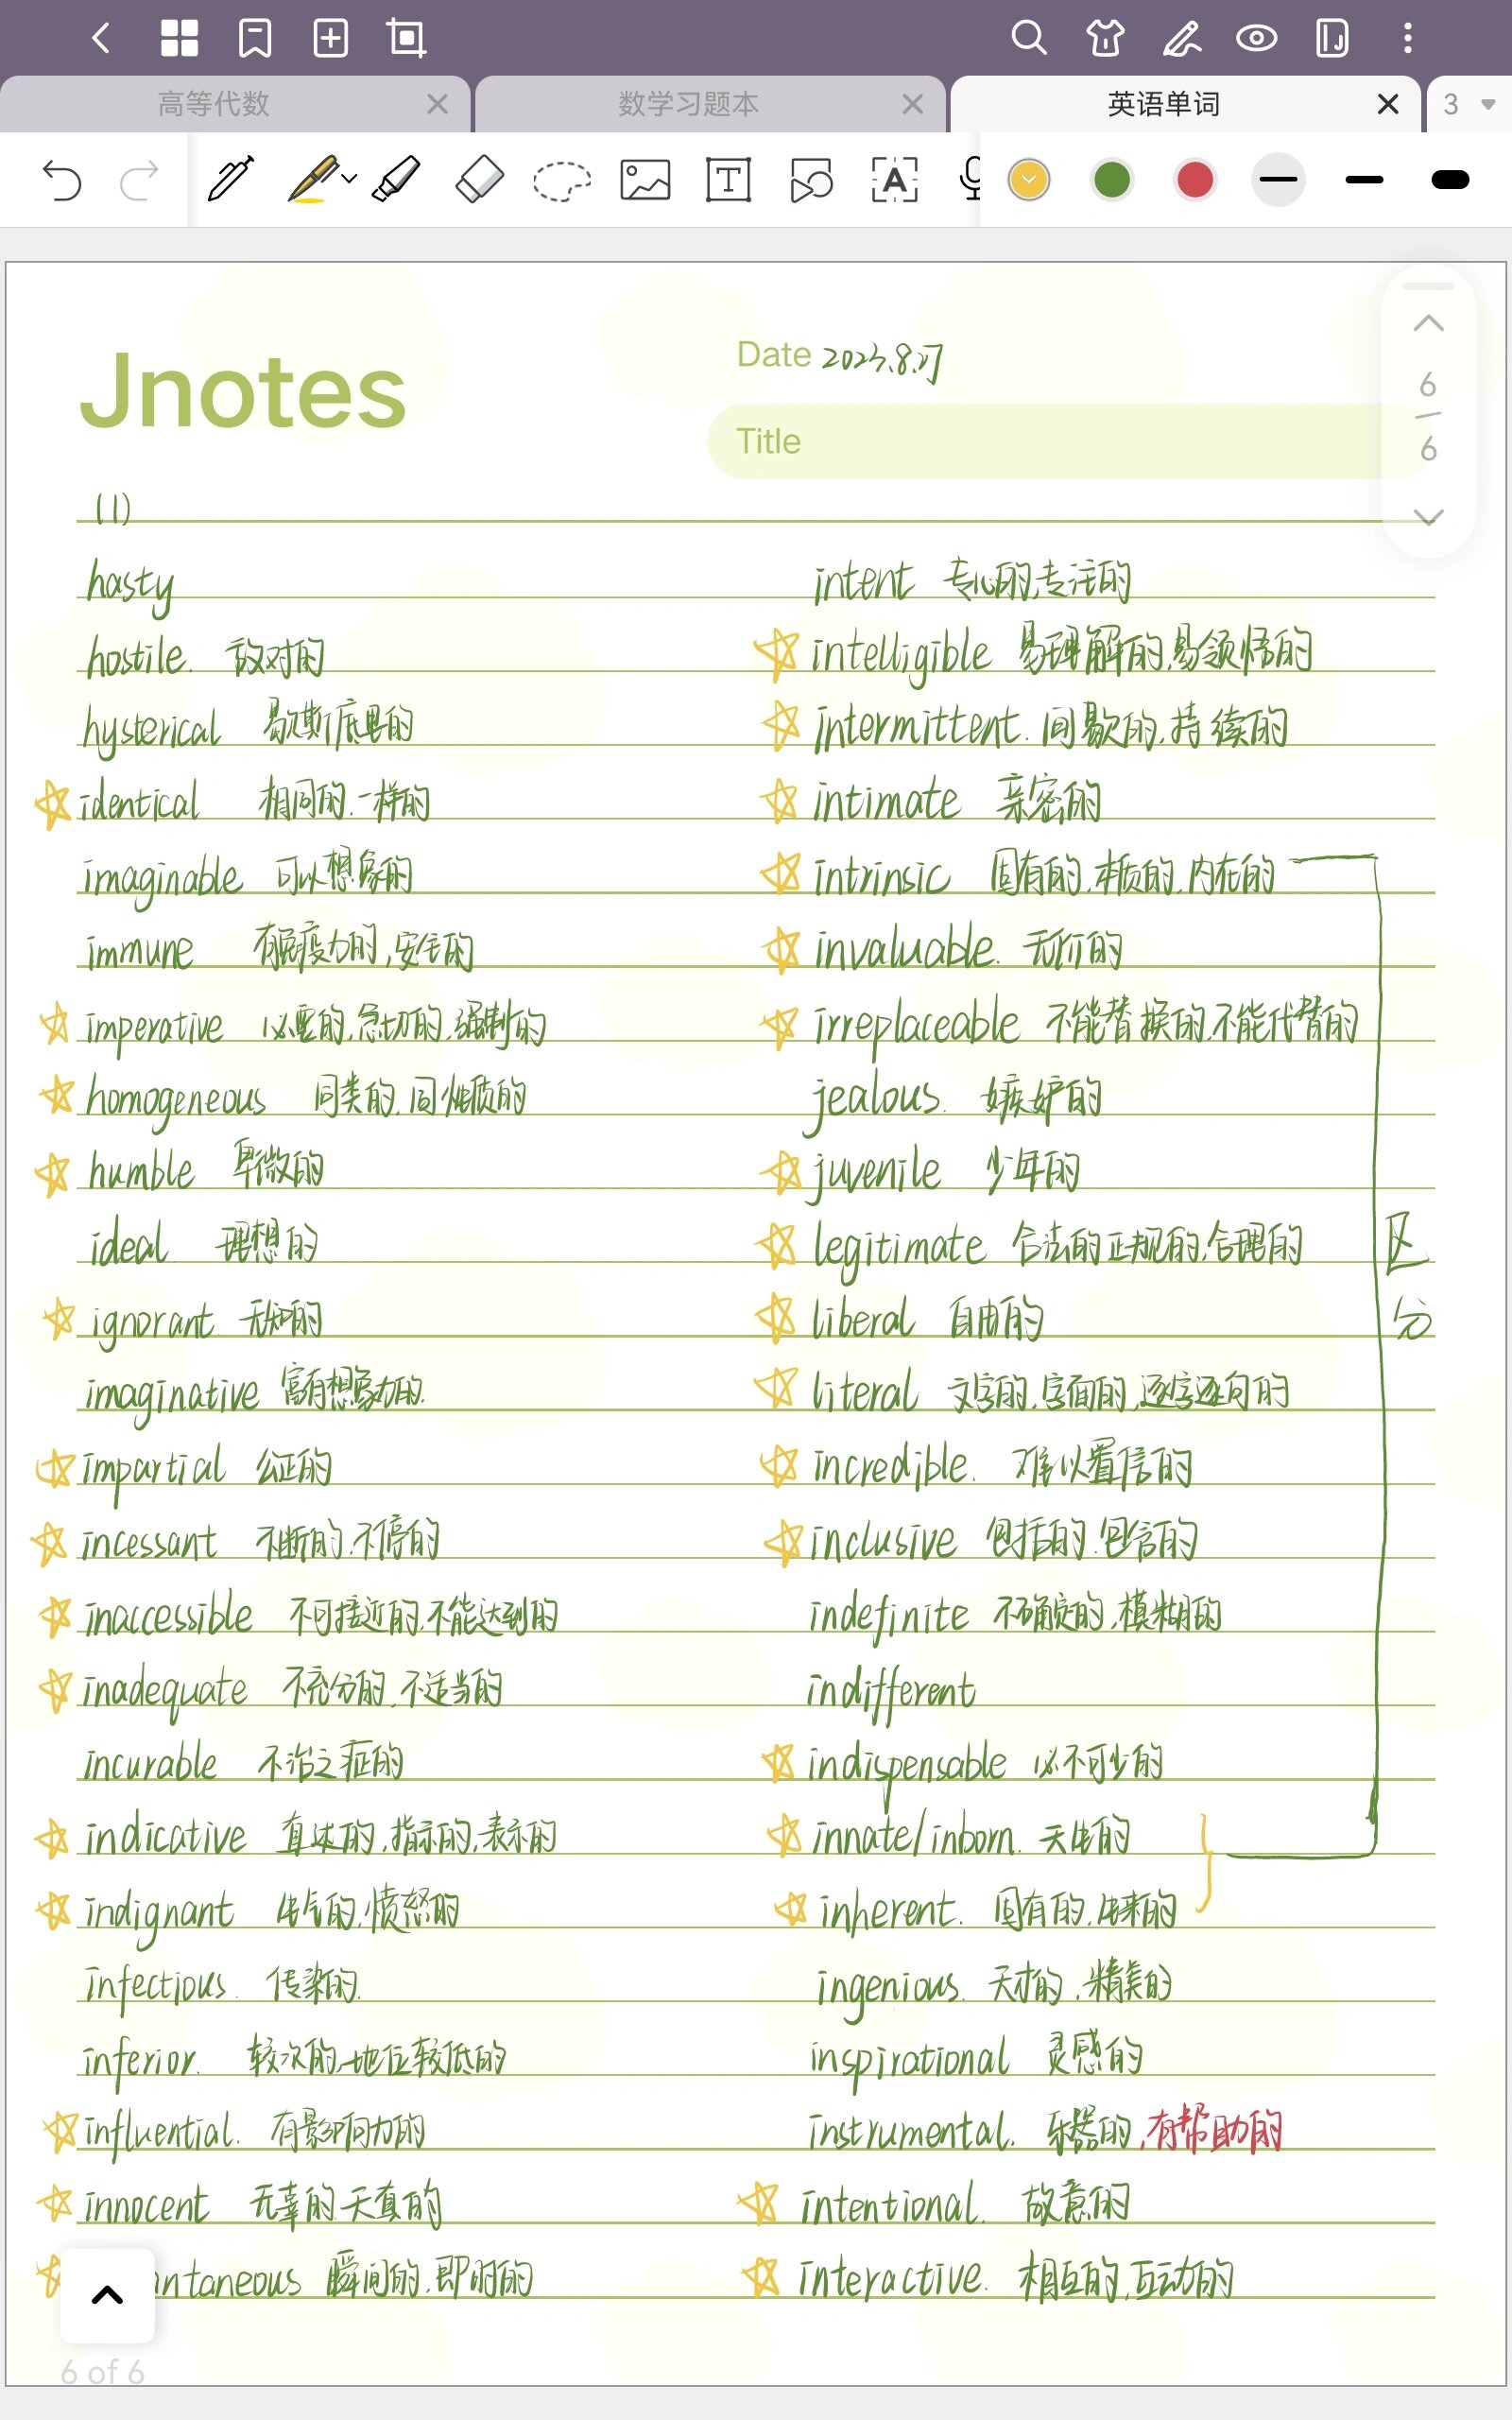 高等代数
数学习题本
英语单词
3
Jnotes
Date 2023.8.17
Title
6
6
(1)
hasty
hostile. 敌对的
hysterical 歇斯底里的
identical 相同的,一样的
imaginable 可以想象的
immune 有免疫力的,安全的
imperative 必要的,急切的,强制的
homogeneous 同类的,同性质的
humble 卑微的
ideal 理想的
ignorant 无知的
imaginative 富有想象力的.
impartial 公正的
incessant 不断的,不停的
inaccessible 不可接近的,不能达到的
inadequate 不充分的,不适当的
incurable 不治之症的
indicative 直达的,指示的,表示的
indignant 生气的,愤怒的
infectious. 传染的.
inferior. 较次的,地位较低的
influential. 有影响力的
innocent 无辜的,天真的
ntaneous 瞬间的,即时的
intent 专心的,专注的
intelligible 易理解的,易领悟的
intermittent. 间歇的,持续的
intimate 亲密的
intrinsic 固有的,本质的,内在的
invaluable. 无价的
irreplaceable 不能替换的,不能代替的
jealous. 嫉妒的
juvenile 少年的
legitimate 合法的,正规的,合理的
liberal 自由的
literal 文字的,字面的,逐字逐句的
incredible. 难以置信的
inclusive 包括的,包含的
indefinite 不确定的,模糊的
indifferent
indispensable 必不可少的
innate/inborn. 天生的
inherent. 固有的,生来的
ingenious. 天才的,精美的
inspirational 灵感的
instrumental. 乐器的,有帮助的
intentional. 故意的
interactive. 相互的,互动的
区
分
6 of 6